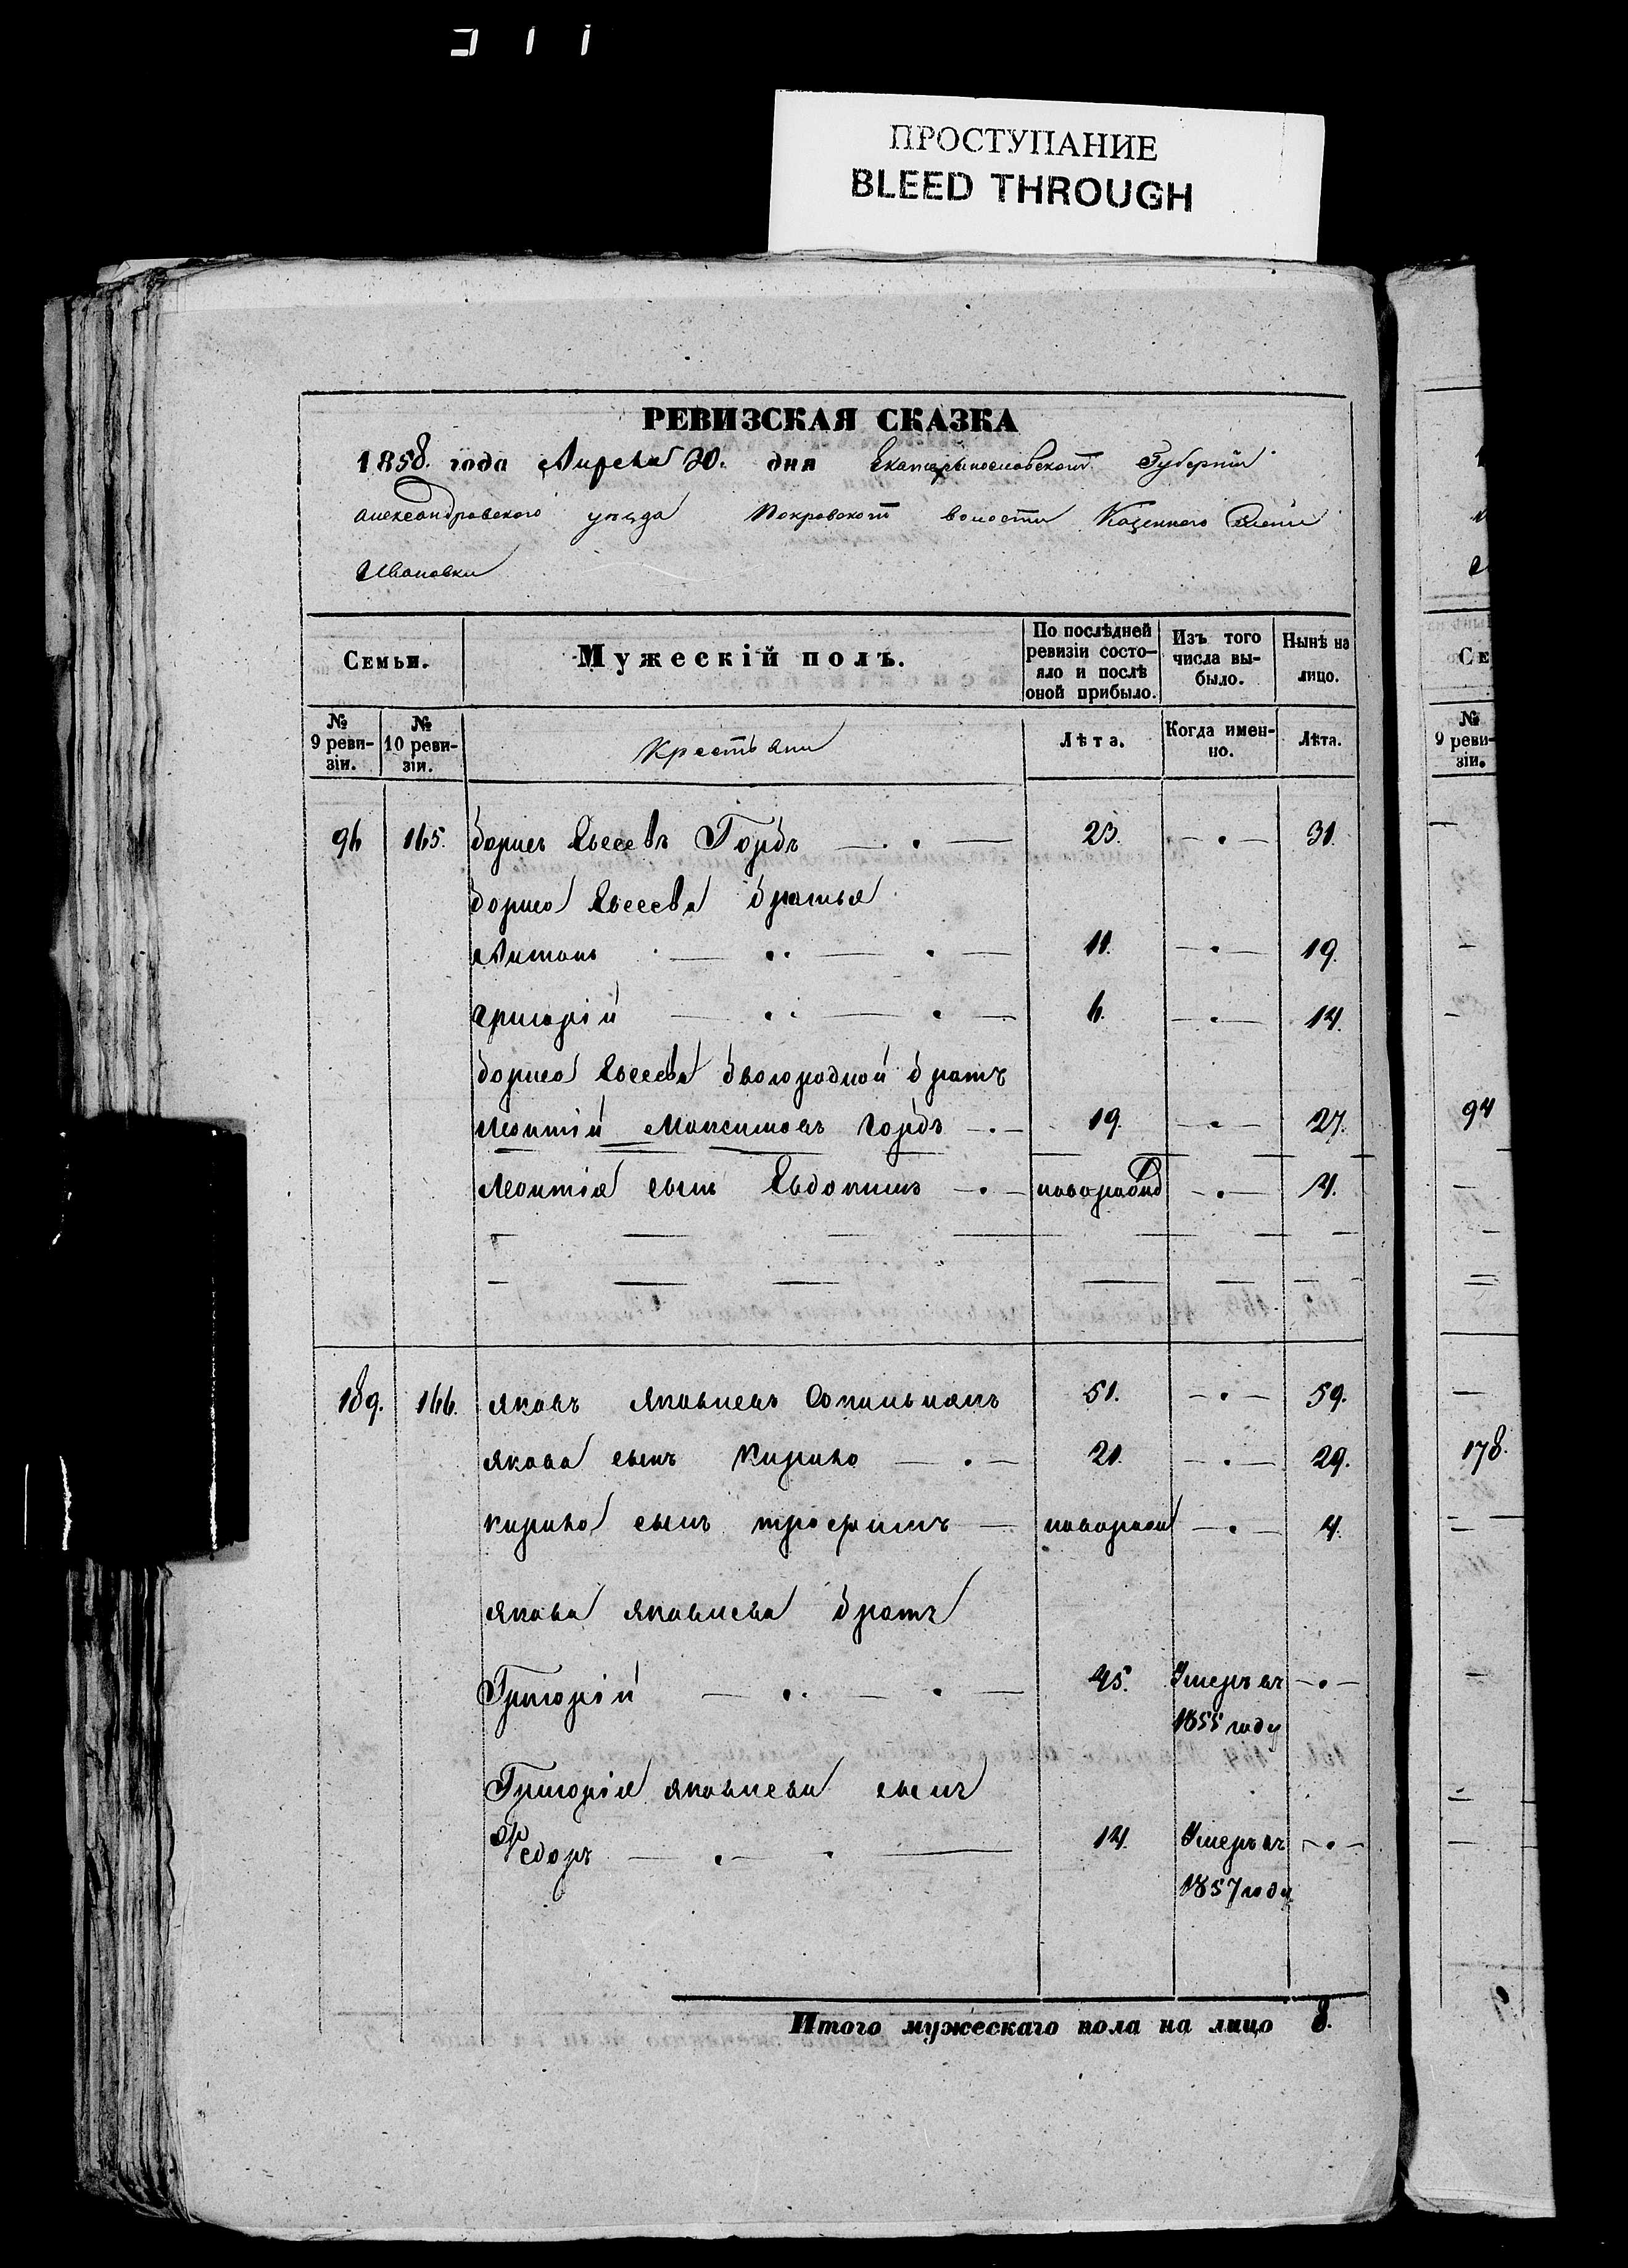 ПРОСТУПАНИЕ
BLEED THROUGH
РЕВИЗСКАЯ СКАЗКА
1858. года Апреля 30. дня Екатерынославской Губернии
Александровского уезда Покровской волости Казенного
Ивановки
Семьи. Мужескій полъ. По послѣдней ревизіи состо-яло и послѣ оной прибыло. Изъ того числа вы-было. Нынѣ на лицо.
№ 9 реви-зіи. № 10 реви-зіи. Крестьяни Лѣта. Когда имен-но. Лѣта.
96 165. Борисъ Евсеевъ Горбъ — . — 23. — . — 31.
Бориса Евсеева братья
Антонъ — .. — . — 11. — . — 19.
Григорій — .. — . — 6. — . — 14.
Бориса Евсеева двоюродной братъ
Леонтій Максимовъ Горбъ — . — 19. — . — 27.
Леонтія сынъ Евдокимъ — . — новорожд — . — 4.
189. 166. Яковъ Яковлевъ 51. — . — 59.
Якова сынъ Кирило — . — 21. — . — 29.
Кирила сынъ трофимъ — новорож — . — 4.
Якова Яковлева братъ
Григорій — .. — . — 45. Умеръ въ — . —
1855 году
Григорія Яковлева сынъ
Федоръ — . — . — 14. Умеръ въ — . —
1857 году
Итого мужескаго пола на лицо 8.
Се
№
9 реви-
зіи.
94
178.